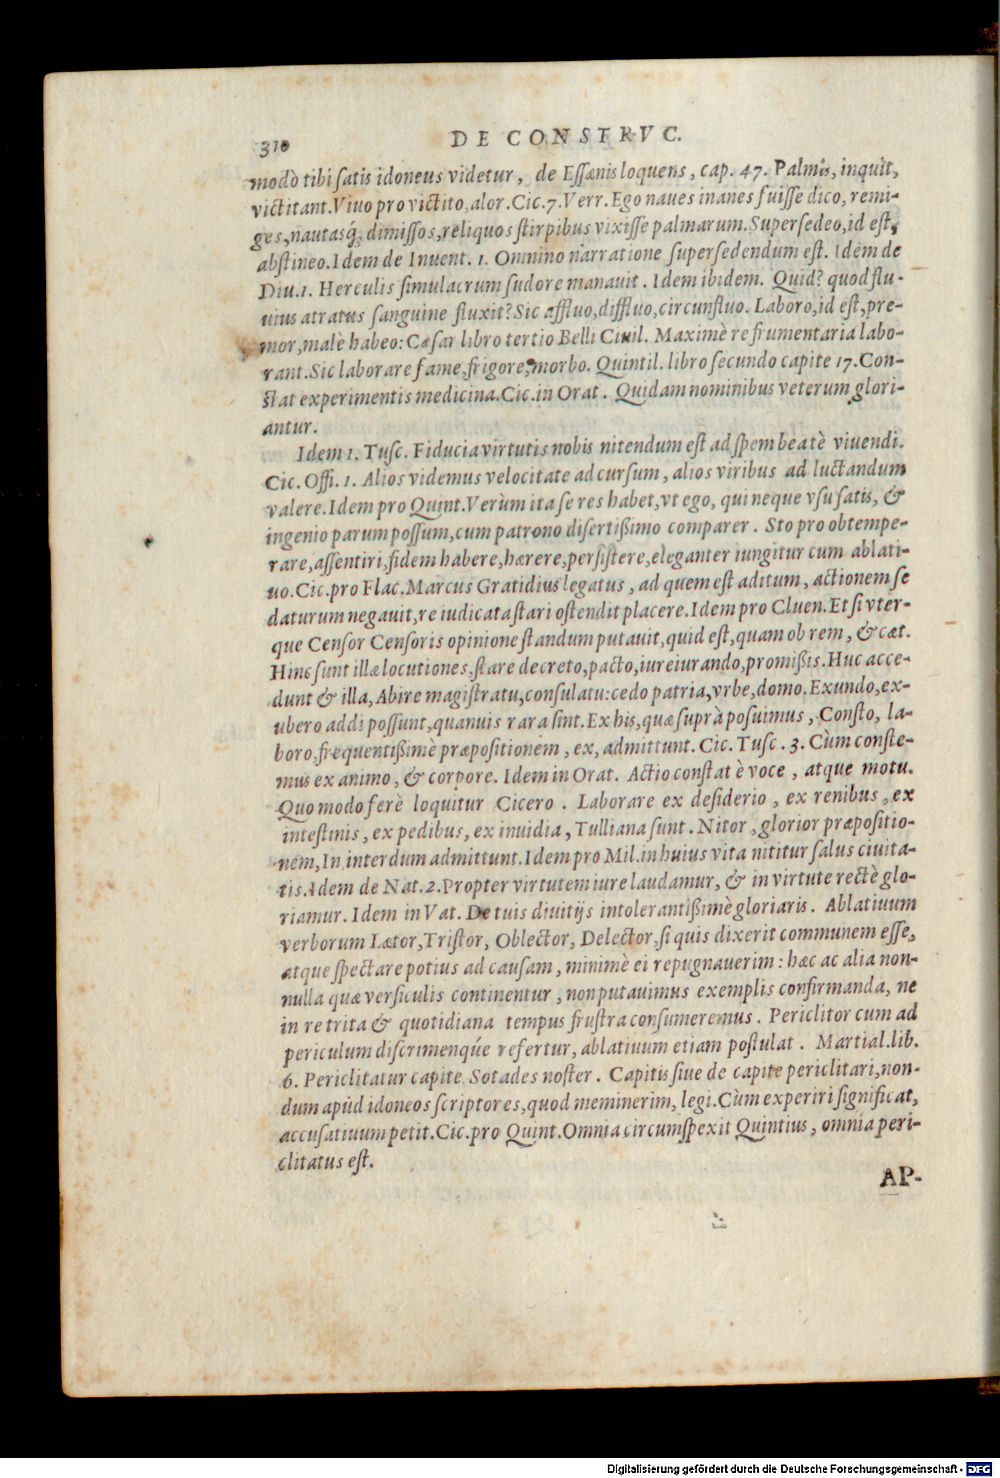 310
DE CONSTRVC.
modò tibi satis idoneus videtur, de Essænis loquens, cap. 47. Palmis, inquit,
victitant. Viuo pro victito, alor. Cic. 7. Verr. Ego naues inanes fuisse dico, remi-
ges, nautasq́; dimissos, reliquos stirpibus vixisse palmarum. Supersedeo, id est,
abstineo. Idem de Inuent. 1. Omnino narratione supersedendum est. Idem de
Diu. 1. Herculis simulacrum sudore manauit. Idem ibidem. Quid? quod flu-
uius atratus sanguine fluxit? Sic affluo, diffluo, circunfluo. Laboro, id est, pre-
mor, malè habeo: Cæsar libro tertio Belli Ciuil. Maximè re frumentaria labo-
rant. Sic laborare fame, frigore, morbo. Quintil. libro secundo capite 17. Con-
stat experimentis medicina. Cic. in Orat. Quidam nominibus veterum glori-
antur.
Idem 1. Tusc. Fiducia virtutis nobis nitendum est ad spem beatè viuendi.
Cic. Offi. 1. Alios videmus velocitate ad cursum, alios viribus ad luctandum
valere. Idem pro Quint. Verùm ita se res habet, vt ego, qui neque vsu satis, &
ingenio parum possum, cum patrono disertißimo comparer. Sto pro obtempe-
rare, assentiri, fidem habere, hærere, persistere, eleganter iungitur cum ablati-
uo. Cic. pro Flac. Marcus Gratidius legatus, ad quem est aditum, actionem se
daturum negauit, re iudicata stari ostendit placere. Idem pro Cluen. Et si vter-
que Censor Censoris opinione standum putauit, quid est, quam ob rem, & cæt.
Hinc sunt illæ locutiones, stare decreto, pacto, iureiurando, promißis. Huc acce-
dunt & illa, Abire magistratu, consulatu: cedo patria, vrbe, domo. Exundo, ex-
ubero addi possunt, quanuis rara sint. Ex his, quæ suprà posuimus, Consto, la-
boro, frequentißimè præpositionem, ex, admittunt. Cic. Tusc. 3. Cùm conste-
mus ex animo, & corpore. Idem in Orat. Actio constat è voce, atque motu.
Quo modo ferè loquitur Cicero. Laborare ex desiderio, ex renibus, ex
intestinis, ex pedibus, ex inuidia, Tulliana sunt. Nitor, glorior præpositio-
nem, In, interdum admittunt. Idem pro Mil. in huius vita nititur salus ciuita-
tis. Idem de Nat. 2. Propter virtutem iure laudamur, & in virtute rectè glo-
riamur. Idem in Vat. De tuis diuitijs intolerantißimè gloriaris. Ablatiuum
verborum Lætor, Tristor, Oblector, Delector, si quis dixerit communem esse,
atque spectare potius ad causam, minimè ei repugnauerim: hæc ac alia non-
nulla quæ versiculis continentur, non putauimus exemplis confirmanda, ne
in re trita & quotidiana tempus frustra consumeremus. Periclitor cum ad
periculum discrimenqúe refertur, ablatiuum etiam postulat. Martial. lib.
6. Periclitatur capite Sotades noster. Capitis siue de capite periclitari, non-
dum apud idoneos scriptores, quod meminerim, legi. Cùm experiri significat,
accusatiuum petit. Cic. pro Quint. Omnia circumspexit Quintius, omnia peri-
clitatus est.
AP-
Digitalisierung gefördert durch die Deutsche Forschungsgemeinschaft - DFG